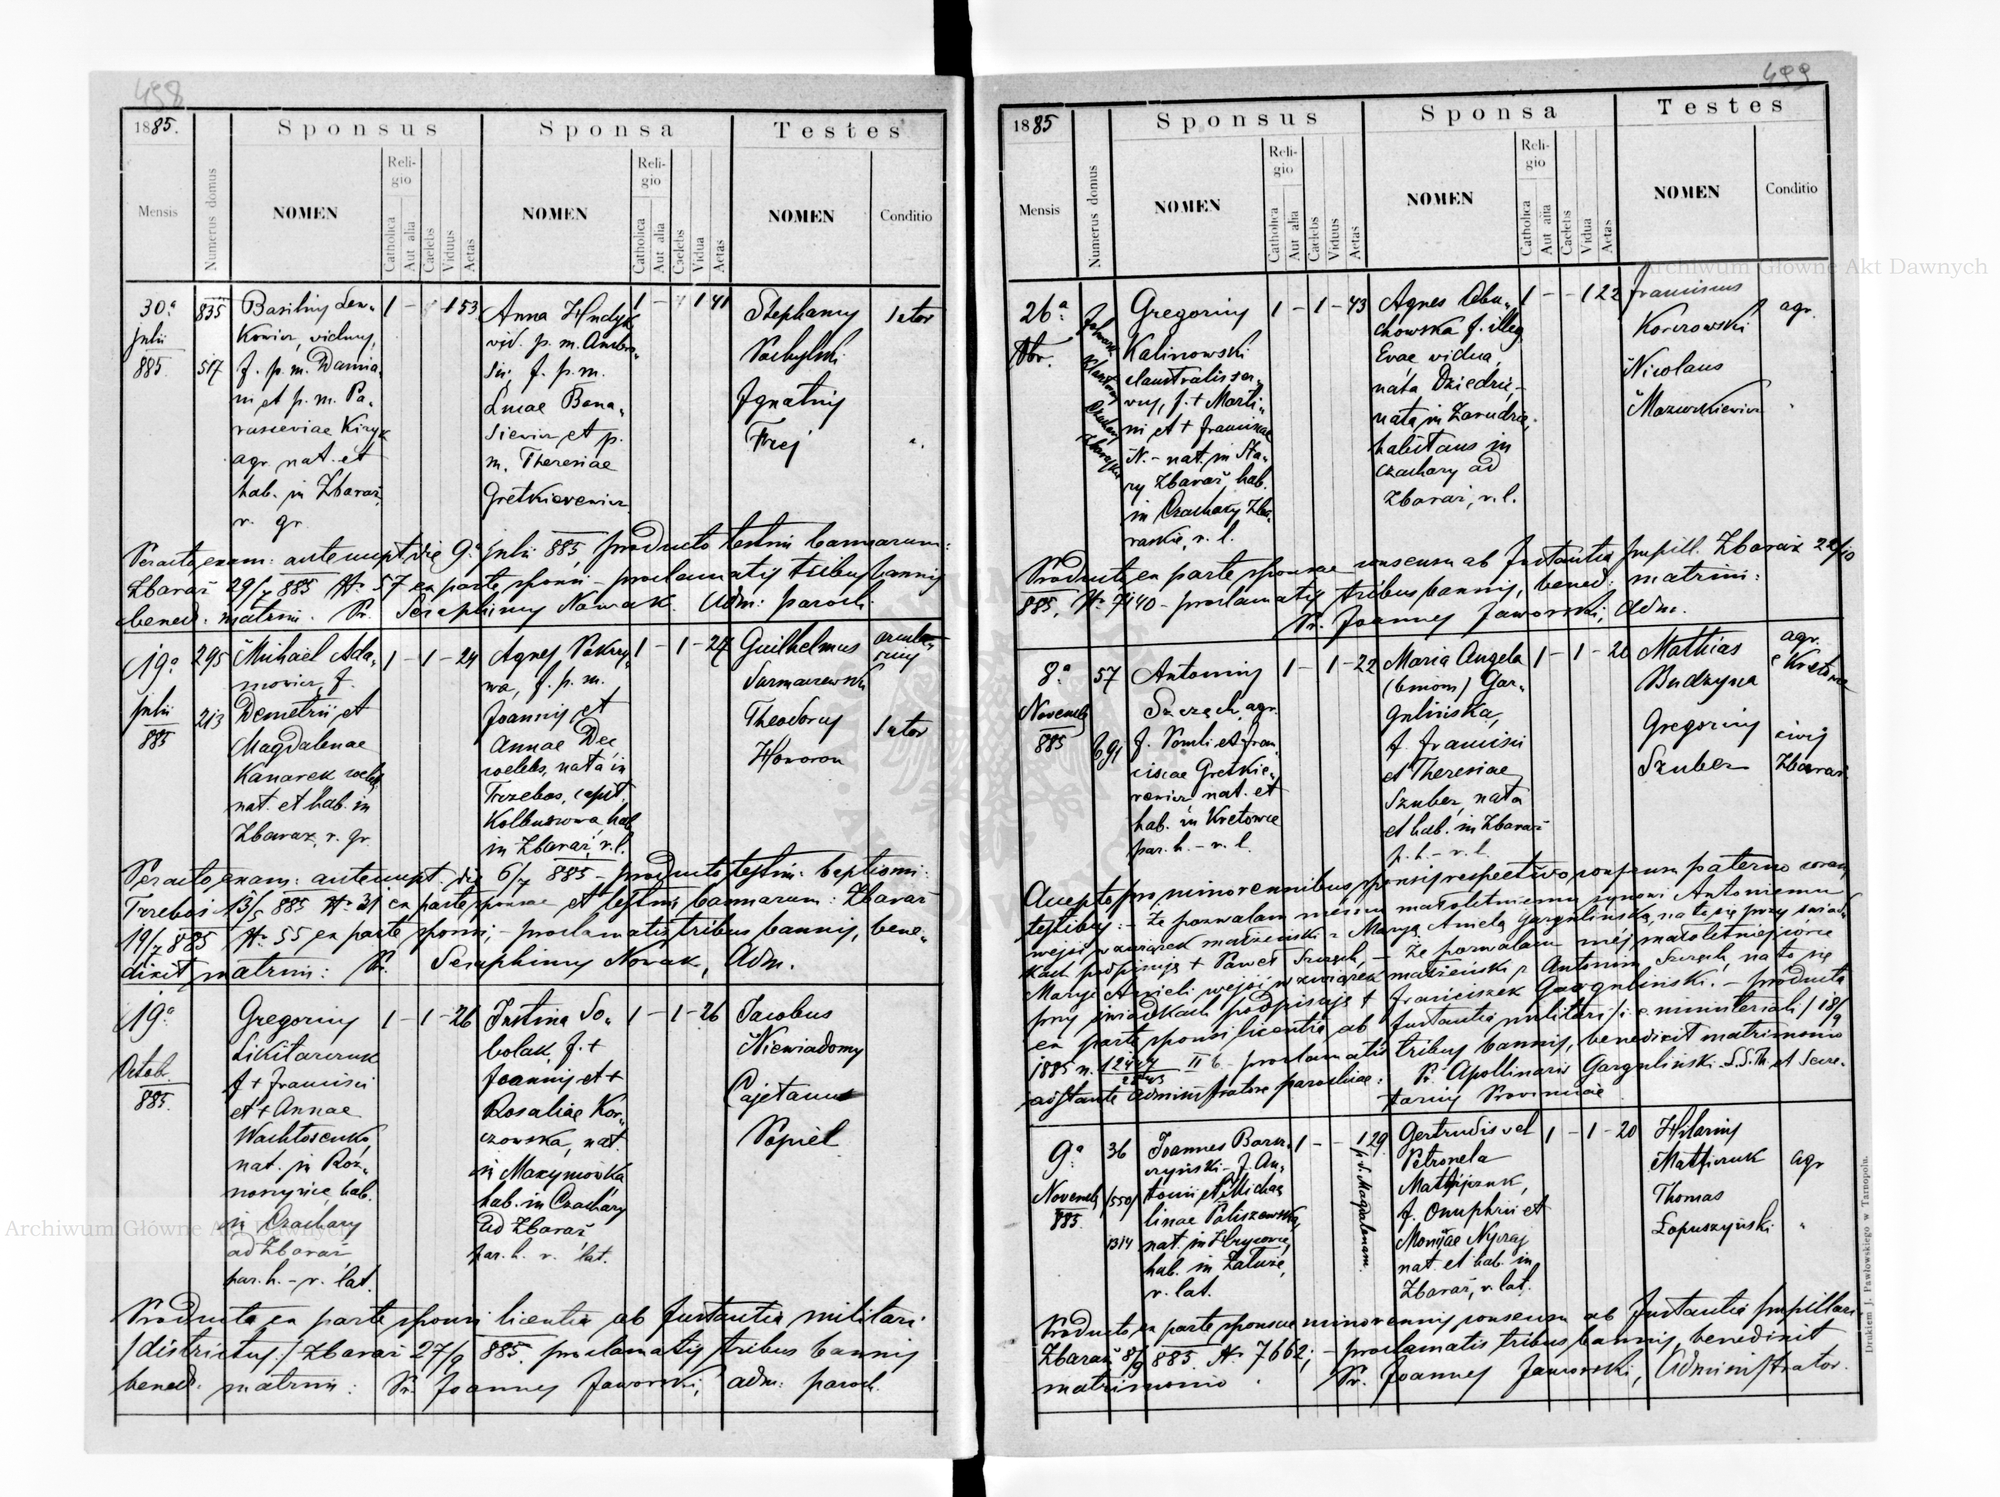 498
1885.
Sponsus
Sponsa
Testes
Mensis
Numerus domus
NOMEN
Religio
Catholica
Aut alia
Caelebs
Viduus
Aetas
NOMEN
Religio
Catholica
Aut alia
Caelebs
Vidua
Aetas
NOMEN
Conditio
30ª
julii
885.
835
517
Basilius Lew-
kowicz, viduus,
f. p. m. Damia-
ni et p. m. Pa-
rasceviae Kizyk
agr. nat. et
hab. in Zbaraż,
r. gr.
1 - 1 53
Anna Hudyk
vid. p. m. Ambro-
sii, f. p. m.
Lucae Bana-
siewicz et p.
m. Theresiae
Gretkierewicz
1 - 1 41
Stephanus
Ignatius
Frej
sutor
Peracto exam: antenupt. die 9ª julii 885, producto testim bannorum:
Zbaraż 29/7 885 Nr. 57 ex parte sponsi - proclamatis tribus bannis
bened: matrim. Pr. Seraphinus Nowak. Adm: paroch.
19ª
julii
885
295
213
Michael Ada-
mowicz, f.
Demetrii et
Magdalenae
Kanarek coelebs,
nat. et hab. in
Zbaraż, r. gr.
1 - 1 - 24
Agnes Pokrzy-
wa, f. p. m.
Joannis et
Annae Dec,
coelebs, nata in
Trzeboś, capit.
Kolbuszowa, hab.
in Zbaraż, r. l.
1 - 1 - 27
Guilhelmus
Theodorus
Howoron
sutor
Peracto exam: antenupt. die 6/7 885 - producto testim: baptismi:
Trzeboś 13/5 885 Nr. 31 ex parte sponsae et testim: bannorum: Zbaraż
19/7 885 Nr. 55 ex parte sponsi; - proclamatis tribus bannis, bene-
dixit matrim: Pr. Seraphinus Nowak, Adm.
19ª
Octob.
885.
Gregorius
Likitarczuk
f + Francisci
et + Annae
nat. in Roz-
noszyńce, hab.
in Czachary
ad Zbaraż
par. h. - r. lat.
1 - 1 - 26
Justina So-
bolak, f. +
Joannis et +
Rosaliae Kor-
czowska, nat.
in Maxymówka
hab. in Czachary
ad Zbaraż
par. h. r. lat.
1 - 1 - 26
Jacobus
Niewiadomy
Cajetanus
Popiel
Producta ex parte sponsi licentia ab Instantia militari
/districtus/ Zbaraż 27/9 885. proclamatis tribus bannis
bened. matrim: Pr. Joannes Jaworski, adm: paroch.
499
1885
Sponsus
Sponsa
Testes
Mensis
Numerus domus
NOMEN
Religio
Catholica
Aut alia
Caelebs
Viduus
Aetas
NOMEN
Religio
Catholica
Aut alia
Caelebs
Vidua
Aetas
NOMEN
Conditio
26ª
Gregorius
Kalinowski
claustralis ser-
vus, f. + Marti-
ni et + Franciscae
N. - nat. in Sta-
ry Zbaraż, hab.
in Czachary Zba-
raskie, r. l.
1 - 1 - 43
Agnes Obu-
chowska f. illeg.
Evae vidua,
nata Dziedzic,
nata in Zarudzie
habitans in
Czachary ad
Zbaraż, r. l.
1 - - 1 22
Franciscus
Korczowski
Nicolaus
Mazurkiewicz
agr.
Producto ex parte sponsae consensu ab Instantia pupill. Zbaraż 22/10
885, Nr. 7140 - proclamatis tribus bannis, bened: matrim:
Pr. Joannes Jaworski, Adm.
8ª
Novemb
885
57
691
Antonius
Szczęch, agr.
f. Pauli et Fran-
ciscae Gretkie-
rewicz nat. et
hab. in Kretowce
par. h. - r. l.
1 - 1 - 22
Maria Angela
(binom) Gar-
gulińska,
f. Francisci
et Theresiae
Szuber, nata
et hab. in Zbaraż
p. h. - r. l.
1 - 1 - 20
Mathias
Budzyna
Gregorius
Szuber
agr.
e Kretowce
civis
Zbaraż
Accepto pro minorennibus sponsis respective consensu paterno coram
testibus: - Że pozwalam memu małoletniemu synowi Antoniemu
wejść w związek małżeński z Maryą Anielą Gargulińską, na to się przy świad-
kach podpisuję + Paweł Szczęch, - Że pozwalam mej małoletniej córce
Maryi Anieli wejść w związek małżeński z Antonim Szczęch, na to się
przy świadkach podpisuję + Franciszek Garguliński. - Producta
ex parte sponsi licentia ab Instantia militari /i. e. ministeriali/ 18/9
1885 n. II b. - proclamatis tribus bannis, benedixit matrimonio
adstante Administratore parochiae: Pr. Apollinaris Garguliński. S.S.Th. et Secre-
tarius Provinciae
9ª
Novemb
885.
36
/550/
1314
Joannes Barw-
czyński - f. An-
tonii et Micha-
linae Paliszewska,
nat. in Hrycowce,
hab. in Załuże,
r. lat.
1 - - 1 29
p. d. Magdalenam.
Gertrudis vel
Petronela
Matijczuk,
f. Onuphrii et
nat. et hab. in
Zbaraż, r. lat.
1 - 1 - 20
Hilarius
Matijczuk
Thomas
Łopuszyński
agr
Producto ex parte sponsae minorennis consensu ab Instantia pupillari
Zbaraż 8/9 885. Nr. 7662; - proclamatis tribus bannis, benedixit
matrimonio. Pr. Joannes Jaworski, Administrator.
Drukiem J. Pawłowskiego w Tarnopolu.
Archiwum Główne Akt Dawnych
Archiwum Główne Akt Dawnych